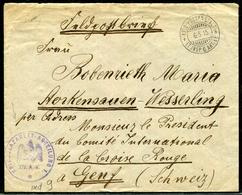 Feldpostbrief
Frau
Bobenrieth Maria
Storkensauen-Wesserling
per Adress
Monsieur le President
du Comité International
de la Croise Rouge
a Genf (Schweiz)